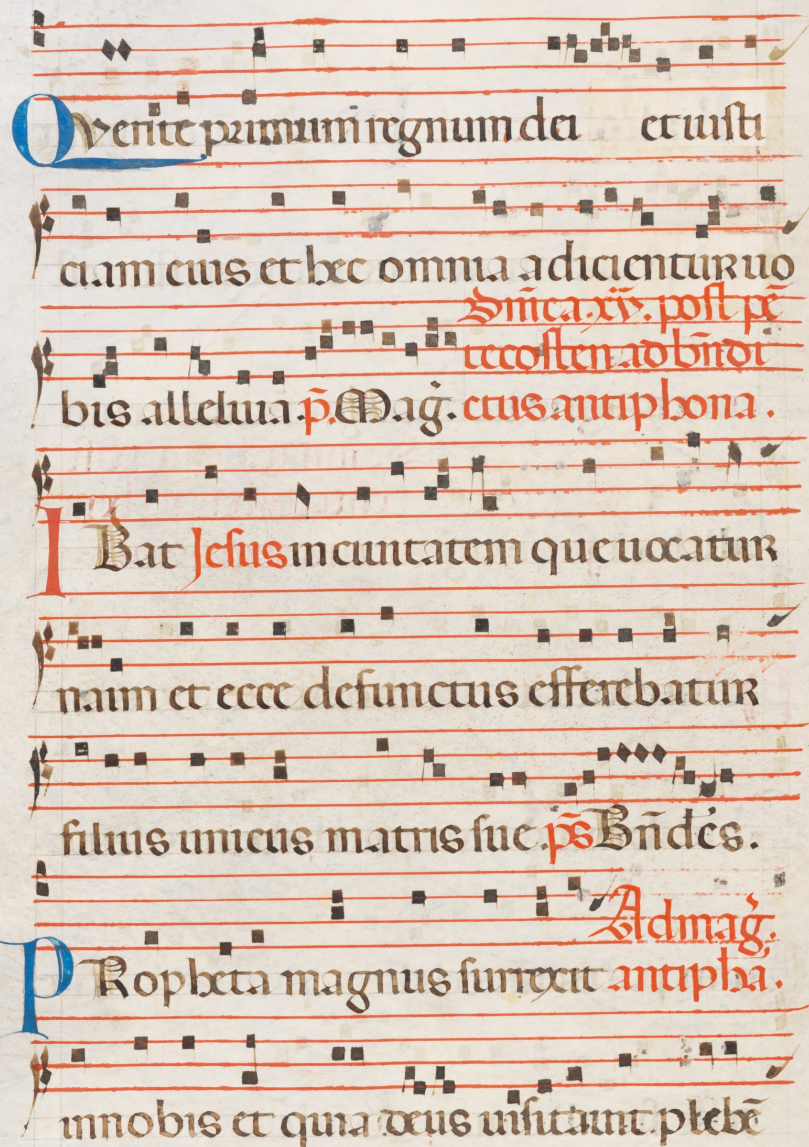 Querite primum regnum dei et iusti
ciam eius et hec omnia adicientur uo
Dn̄ica. xv. post pē
tecosten ad bn̄di
bis alleluia. p̄. Mag̉. ctus antiphona.
Ibat Jesus in ciuitatem que uocatur
naim et ecce defunctus efferebatur
filius unicus matris sue. ps̄ Bn̄dc̄s.
Ad mag̉.
Propheta magnus surrexit antipha̅.
in nobis et quia deus uisitauit plebē